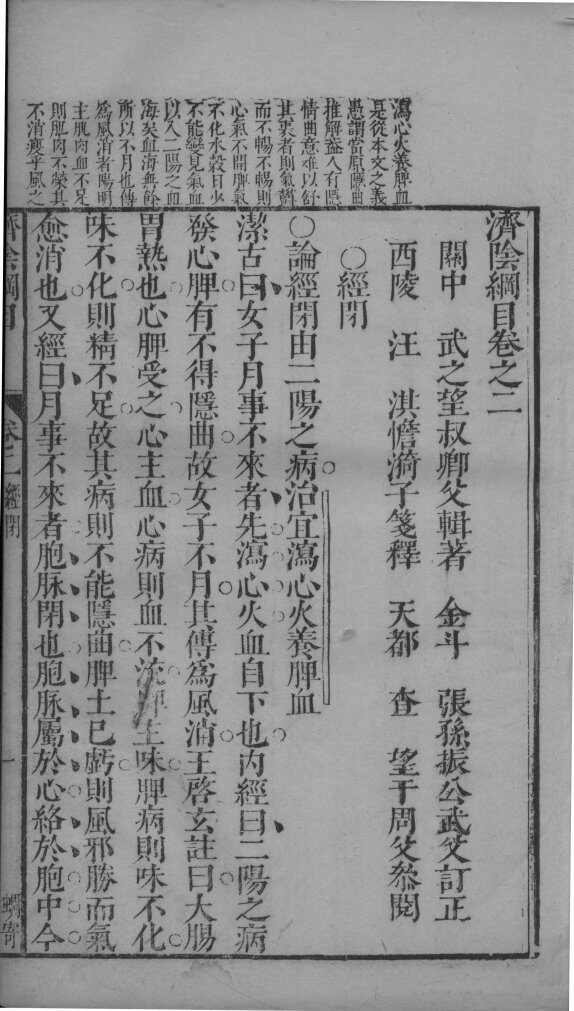 瀉心火養脾血
是從本文之義
愚謂當原隱曲
推解蓋人有隱
情曲意難以舒
其衷者則氣鬱
而不暢不暢則
心氣不開脾氣
不化水穀日少
不能變見氣血
以入二陽之血
海矣血海無餘
所以不月也傳
為風消者陽明
主肌肉血不足
則肌肉不榮其
不消瘦乎風之
濟陰綱目卷之二
關中 武之望叔卿父輯著 金斗 張孫振公武父訂正
西陵 汪 淇憺漪子箋釋 天都 查 望于周父叅閱
○經閉
○論經閉由二陽之病治宜瀉心火養脾血
潔古曰女子月事不來者先瀉心火血自下也内經曰二陽之病
發心脾有不得隱曲故女子不月其傳為風消王啓玄註曰大腸
胃熱也心脾受之心主血心病則血不流脾主味脾病則味不化
味不化則精不足故其病則不能隱曲脾土已虧則風邪勝而氣
愈消也又經曰月事不來者胞脉閉也胞脉屬於心絡於胞中今
濟陰綱目 卷二 經閉 一 蜩寄